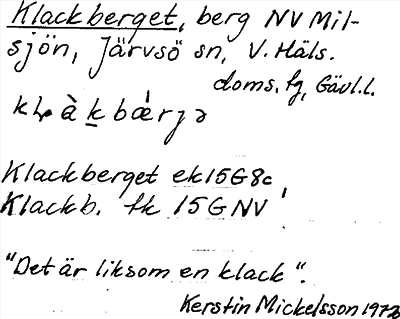 Klackberget, berg NV Mil-
sjön, Järvsö sn, V. Häls.
doms. fg, Gävl.l.
Klackberget ek 15G8c
Klackb. fk 15 G NV
"Det är liksom en klack".
Kerstin Mickelsson 1973